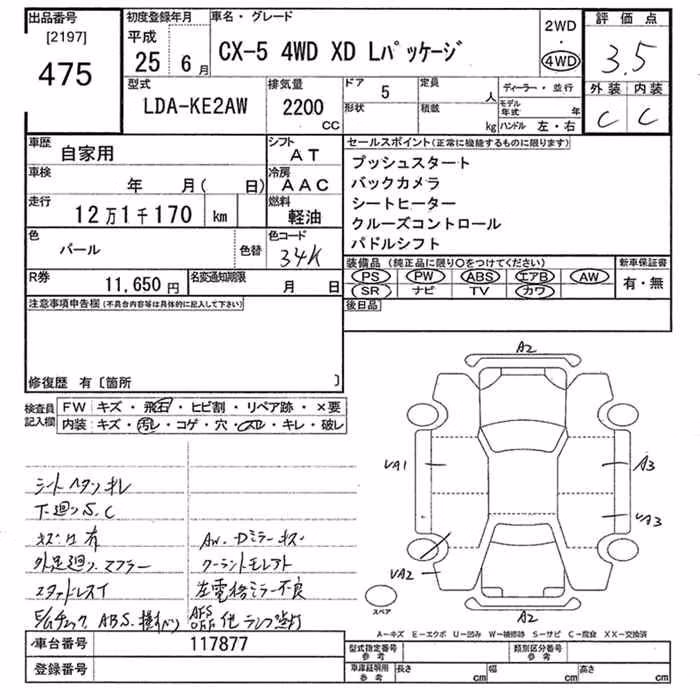 出品番号 初度登録年月 車名・グレード 2WD 評価点
[2197] 平成 ・
475 25 6月 CX-5 4WD XD Lパッケージ 4WD 3.5
型式 排気量 ドア 5 定員 人 ディーラー・並行 外装 内装
LDA-KE2AW 2200 CC 形状 積載 kg モデル年式 年 C C
ハンドル 左・右
車歴 自家用 シフト AT セールスポイント(正常に機能するものに限ります)
車検 年 月( 日) 冷房 AAC プッシュスタート
バックカメラ
走行 12万1千170 km 燃料 軽油 シートヒーター
クルーズコントロール
色 パール 色替 色コード 34K パドルシフト
装備品 (純正品に限り○をつけてください) 新車保証書
R券 11,650円 名変通知期限 月 日 PS PW ABS エアB AW 有・無
SR ナビ TV カワ
注意事項申告欄(不具合内容等は具体的に記入して下さい) 後日品
修復歴 有〔箇所 〕
検査員 FW キズ・飛石・ヒビ割・リペア跡・×要
記入欄 内装 キズ・汚レ・コゲ・穴・スレ・キレ・破レ
A2
VA1 A3
VA3
VA2
A2
スペア
シートヘタリ キレ
下廻りS.C
キズ口有 AW.Dミラーキズ
外足廻り.マフラー クーラントモレアト
スタッドレスイ 左電格ミラー不良
ABS. AFS OFF 他ランプ点灯
A-キズ E-エクボ U-凹み W-補修跡 S-サビ C-腐食 XX-交換済
車台番号 117877 型式指定番号 参考 類別区分番号 参考
登録番号 車庫証明用 参考 長さ cm 幅 cm 高さ cm